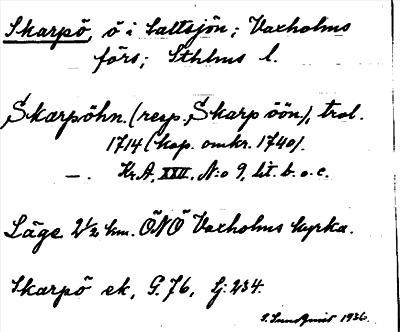 Skarpö, ö i Saltsjön; Vaxholms
förs; Sthlms l.
Skarpöhn. (resp. Skarpöön), trol.
1714 (kop. omkr. 1740).
—. Kr.A. XXII. N:o 9, lit. b. o. c.
Läge 2½ km. ÖNÖ Vaxholms kyrka.
Skarpö ek, G. 76, Lj: 234.
1936.